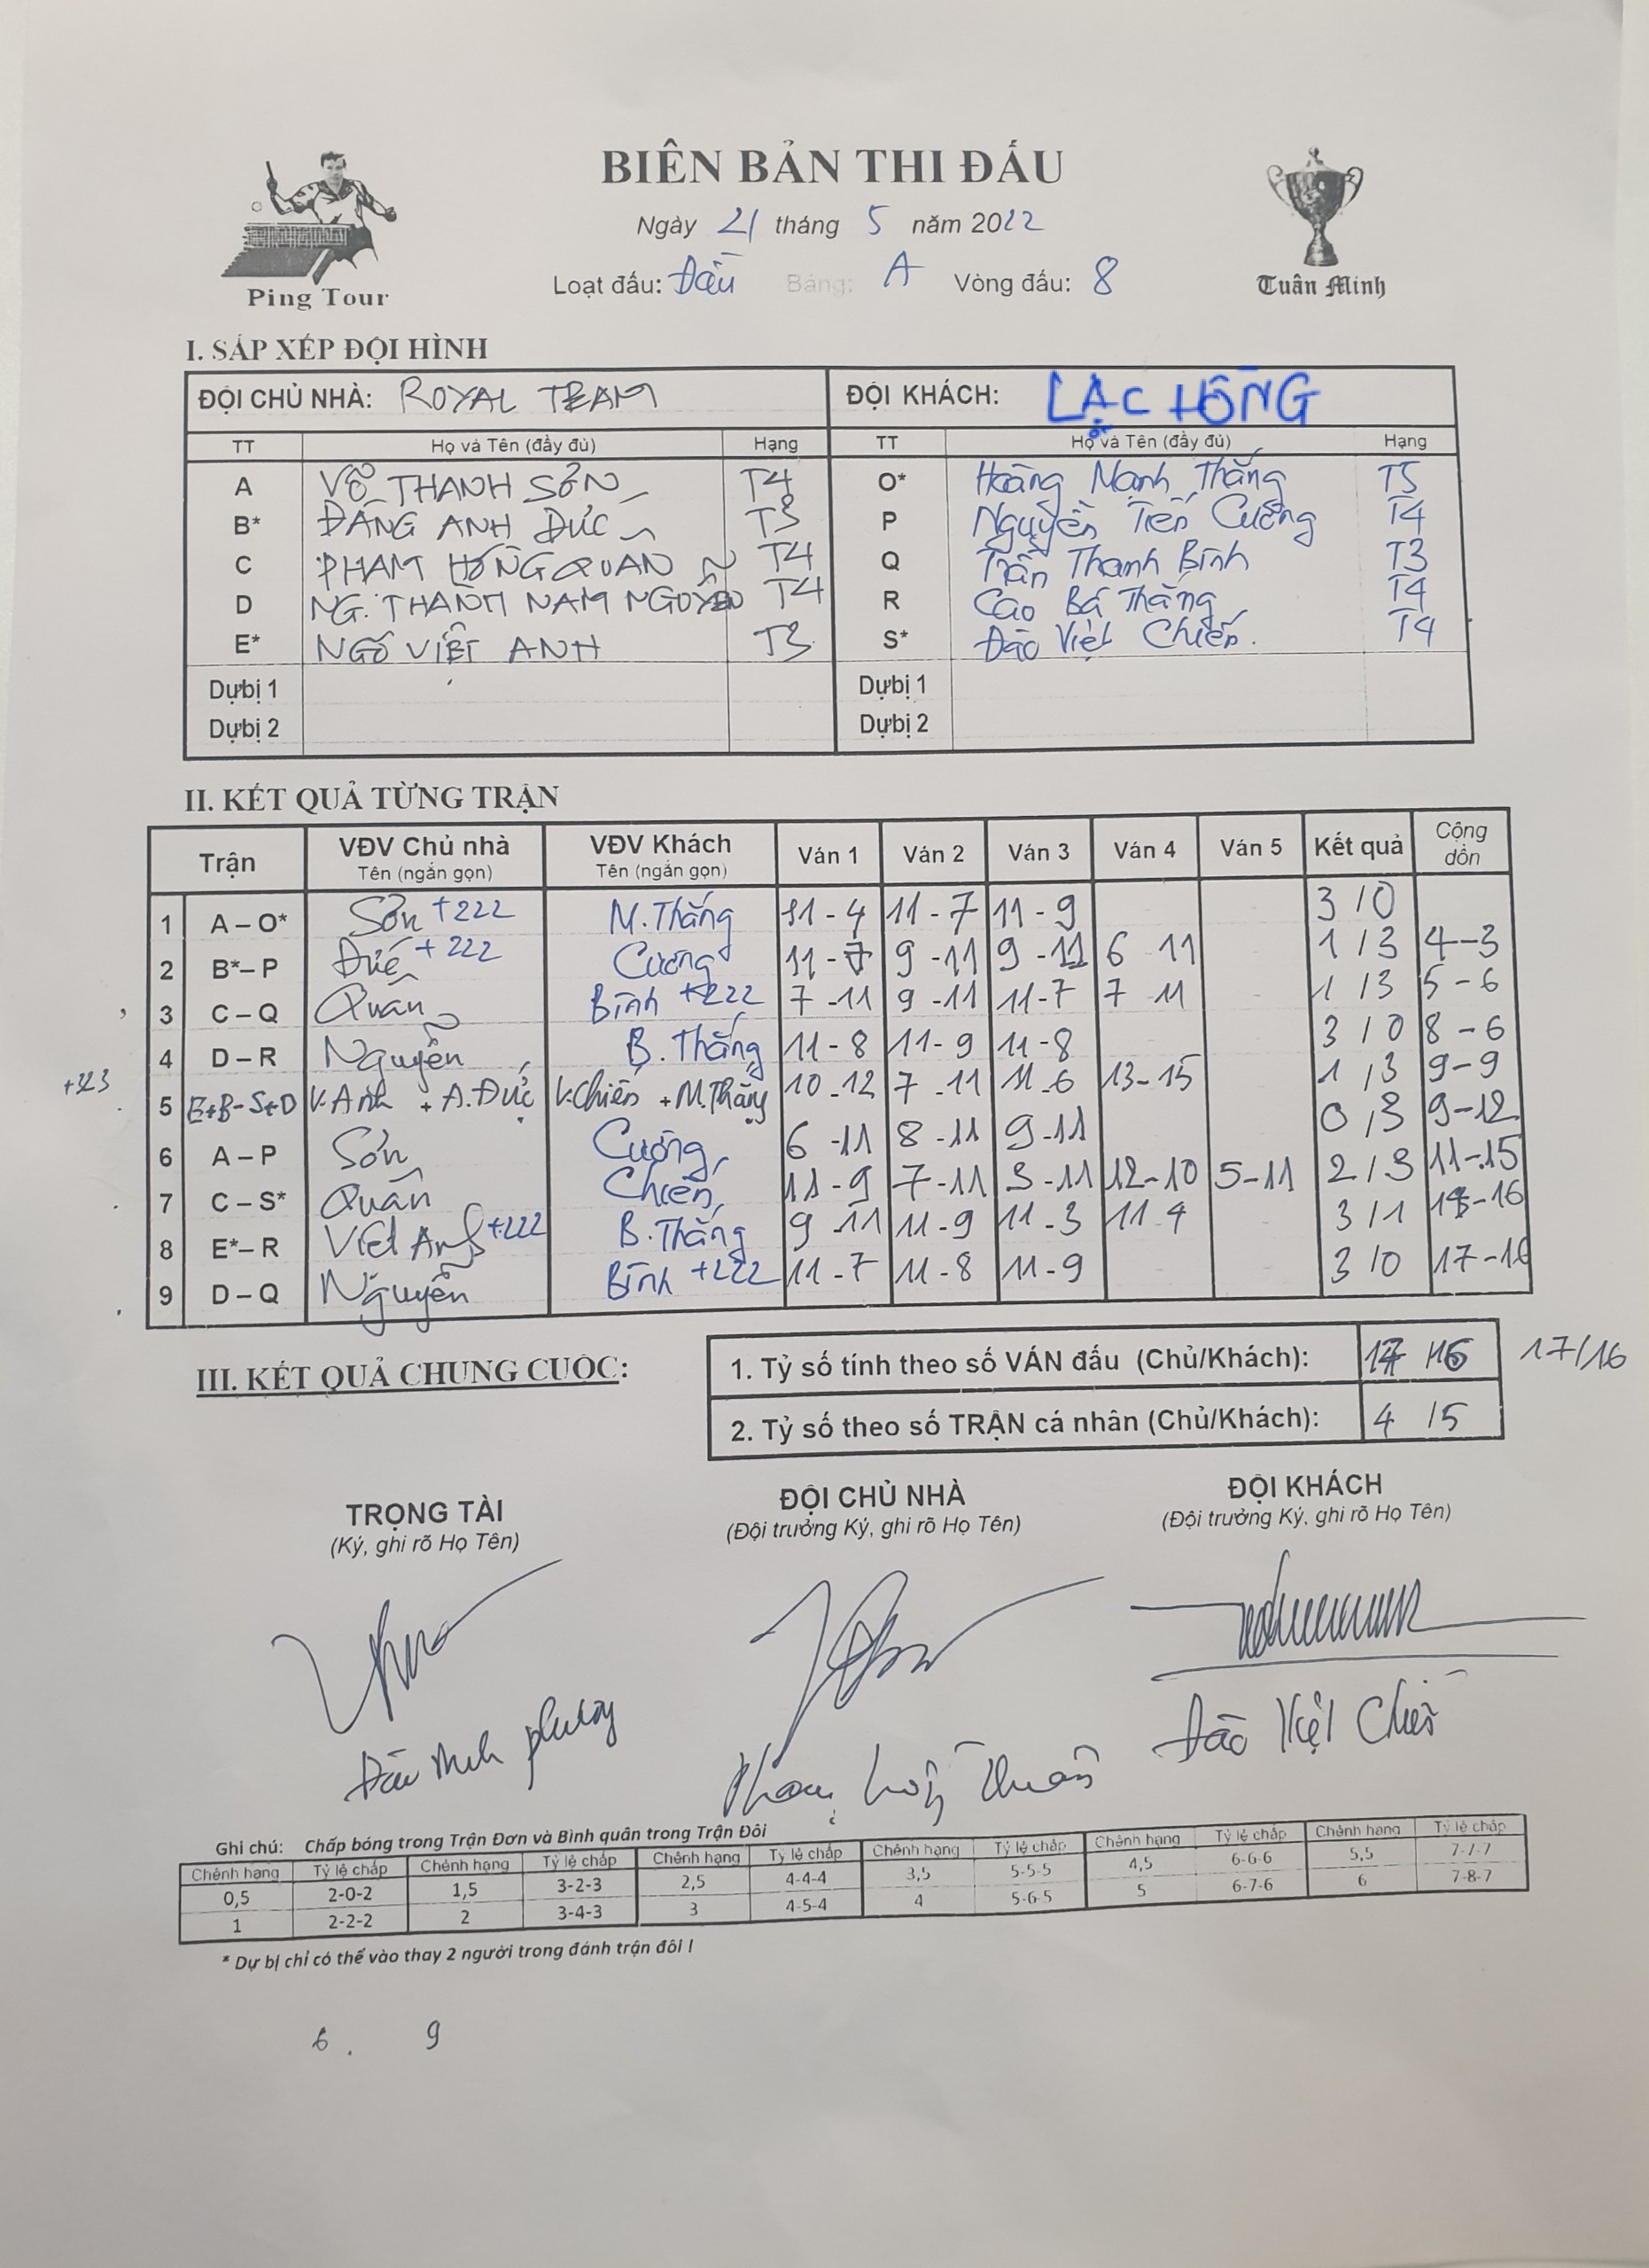 BIÊN BẢN THI ĐẤU
Ngày 21 tháng 5 năm 2022
Loạt đấu: Đầu Bảng: A Vòng đấu: 8
Ping Tour
Tuân Minh
I. SẮP XẾP ĐỘI HÌNH
ĐỘI CHỦ NHÀ: ROYAL TEAM ĐỘI KHÁCH: LẠC HỒNG
TT Họ và Tên (đầy đủ) Hạng TT Họ và Tên (đầy đủ) Hạng
A VÕ THANH SƠN T4 O* Hoàng Mạnh Thắng T5
B* ĐẶNG ANH ĐỨC T3 P Nguyễn Tiến Cường T4
C PHẠM HỒNG QUÂN T4 Q Trần Thanh Bình T3
D NG. THÀNH NAM NGUYÊN T4 R Cao Bá Thắng T4
E* NGÔ VIỆT ANH T3 S* Đào Việt Chiến. T4
Dựbị 1 Dựbị 1
Dựbị 2 Dựbị 2
II. KẾT QUẢ TỪNG TRẬN
Trận VĐV Chủ nhà Tên (ngắn gọn) VĐV Khách Tên (ngắn gọn) Ván 1 Ván 2 Ván 3 Ván 4 Ván 5 Kết quả Cộng dồn
1 A – O* Sơn +222 M. Thắng 11 - 4 11 - 7 11 - 9 3 / 0
2 B*– P Đức +222 Cường 11 - 7 9 - 11 9 - 11 6 11 1 / 3 4 - 3
3 C – Q Quân Bình +222 7 - 11 9 - 11 11 - 7 7 11 1 / 3 5 - 6
4 D – R Nguyên B. Thắng 11 - 8 11 - 9 11 - 8 3 / 0 8 - 6
+323 5 E+B - S+O V. Anh + A. Đức V. Chiến + M. Thắng 10 - 12 7 - 11 11 - 6 13 - 15 1 / 3 9 - 9
6 A – P Sơn Cường 6 - 11 8 - 11 9 - 11 0 / 3 9 - 12
7 C – S* Quân Chiến 11 - 9 7 - 11 3 - 11 12 - 10 5 - 11 2 / 3 11 - 15
8 E*– R Việt Anh +222 B. Thắng 9 11 11 - 9 11 - 3 11 4 3 / 1 14 - 16
9 D – Q Nguyên Bình +222 11 - 7 11 - 8 11 - 9 3 / 0 17 - 16
III. KẾT QUẢ CHUNG CUỘC:
1. Tỷ số tính theo số VÁN đấu (Chủ/Khách): 17 /16 17/16
2. Tỷ số theo số TRẬN cá nhân (Chủ/Khách): 4 / 5
TRỌNG TÀI ĐỘI CHỦ NHÀ ĐỘI KHÁCH
(Ký, ghi rõ Họ Tên) (Đội trưởng Ký, ghi rõ Họ Tên) (Đội trưởng Ký, ghi rõ Họ Tên)
Đào Việt Chiến
Ghi chú: Chấp bóng trong Trận Đơn và Bình quân trong Trận Đôi
Chênh hạng Tỷ lệ chấp Chênh hạng Tỷ lệ chấp Chênh hạng Tỷ lệ chấp Chênh hạng Tỷ lệ chấp Chênh hạng Tỷ lệ chấp Chênh hạng Tỷ lệ chấp
0,5 2-0-2 1,5 3-2-3 2,5 4-4-4 3,5 5-5-5 4,5 6-6-6 5,5 7-7-7
1 2-2-2 2 3-4-3 3 4-5-4 4 5-6-5 5 6-7-6 6 7-8-7
* Dự bị chỉ có thể vào thay 2 người trong đánh trận đôi !
6 . 9